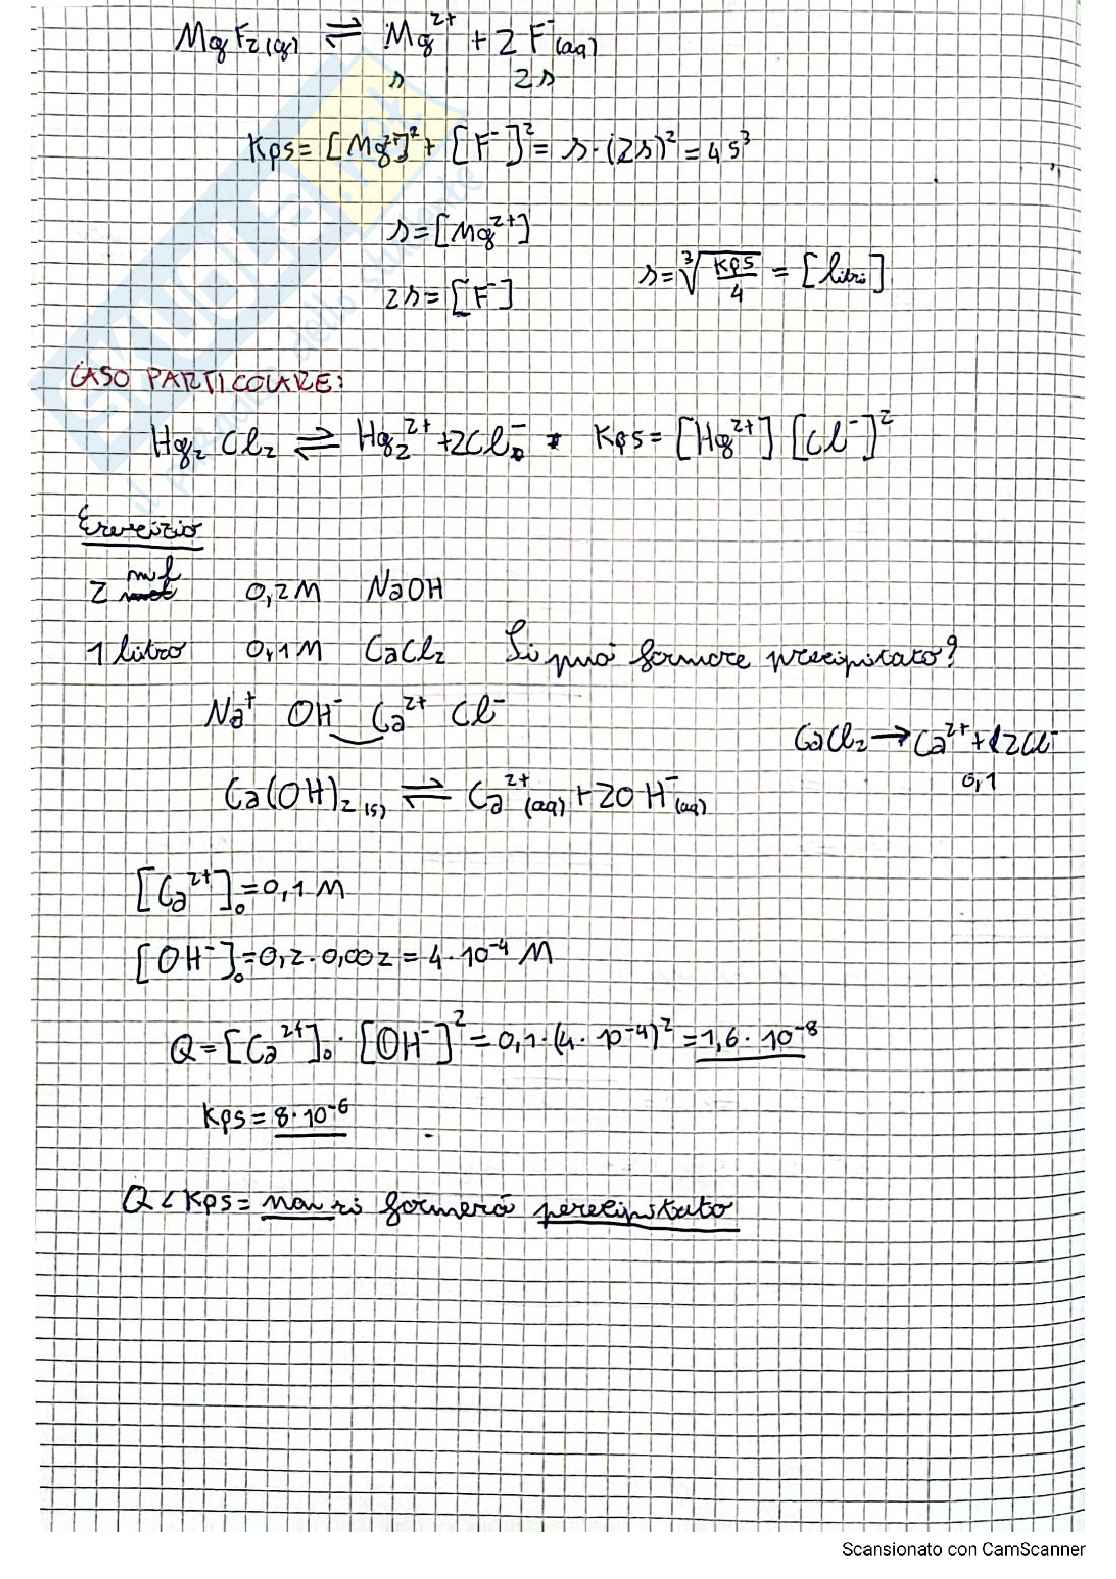 MgF₂(g) ⇌ Mg²⁺ + 2F⁻(aq)
s 2s
Kps = [Mg²⁺]² + [F⁻]² = s·(2s)² = 4s³
s = [Mg²⁺]
s = ∛(Kps/4) = [litri]
2s = [F⁻]
CASO PARTICOLARE:
Hg₂Cl₂ ⇌ Hg₂²⁺ + 2Cl⁻ Kps = [Hg²⁺] [Cl⁻]²
Esercizio
2 ml 0,2M NaOH
1 litro 0,1M CaCl₂ Si può formare precipitato?
Na⁺ OH⁻ Ca²⁺ Cl⁻
CaCl₂ → Ca²⁺ + 2Cl⁻
0,1
Ca(OH)₂(s) ⇌ Ca²⁺(aq) + 2OH⁻(aq)
[Ca²⁺]₀ = 0,1 M
[OH⁻]₀ = 0,2 · 0,002 = 4 · 10⁻⁴ M
Q = [Ca²⁺]₀ · [OH⁻]² = 0,1 · (4 · 10⁻⁴)² = 1,6 · 10⁻⁸
Kps = 8 · 10⁻⁶
Q < Kps = non si formerà precipitato
Scansionato con CamScanner